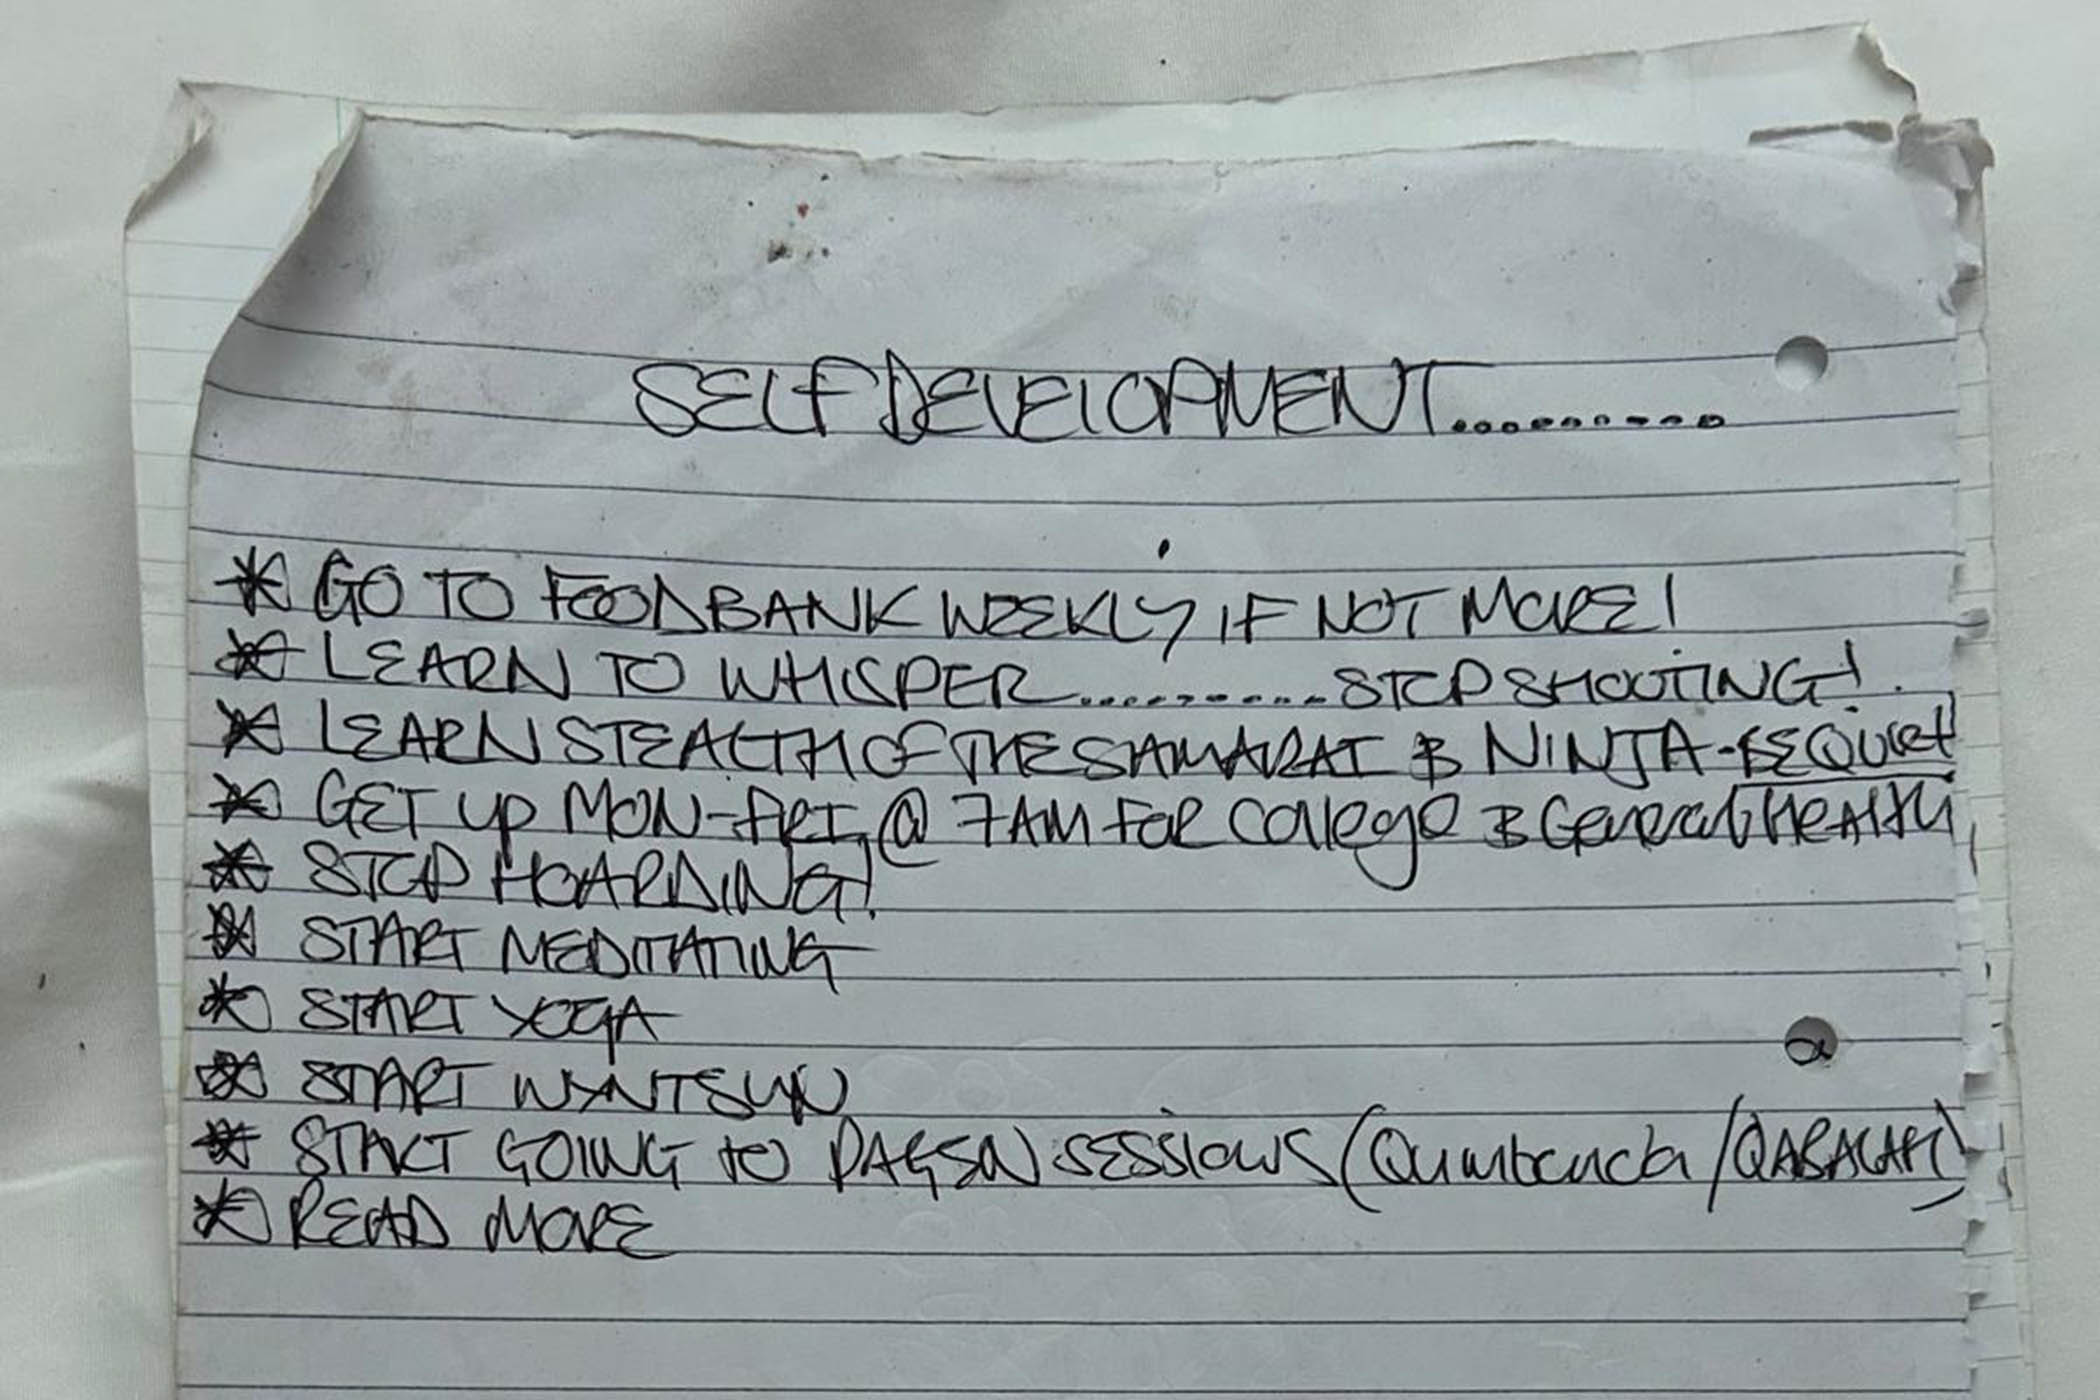 SELF DEVELOPMENT..........
* GO TO FOODBANK WEEKLY IF NOT MORE!
* LEARN TO WHISPER..........STOP SHOOTING!
* LEARN STEALTH OF THE SAMARAI & NINJA - BE QUIET!
* GET UP MON-FRI @ 7AM FOR College & General HEALTH
* STOP HOARDING!
* START MEDITATING
* START YOGA
* START
* START GOING TO SESSIONS (
* READ MORE